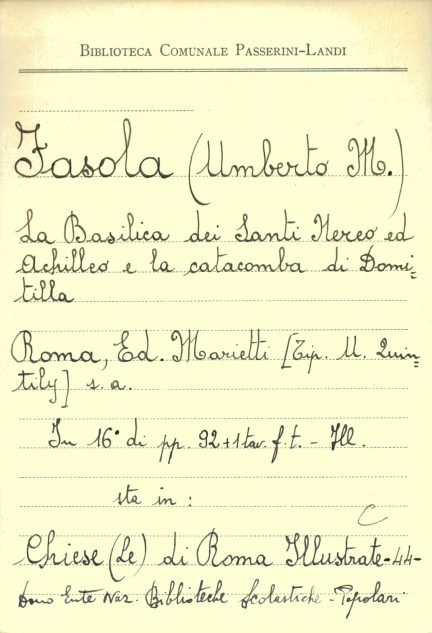 BIBLIOTECA COMUNALE PASSERINI-LANDI
Fasola (Umberto M.)
La Basilica dei Santi Nereo ed
Achilleo e la catacomba di Domi=
tilla
Roma, Ed. Marietti [Tip. U. Quin=
tily] s. a.
In 16° di pp. 92+1 tav. f. t. - Ill.
sta in:
C
Chiese (Le) di Roma Illustrate-44-
Dono Ente Naz. Biblioteche Scolastiche - Popolari